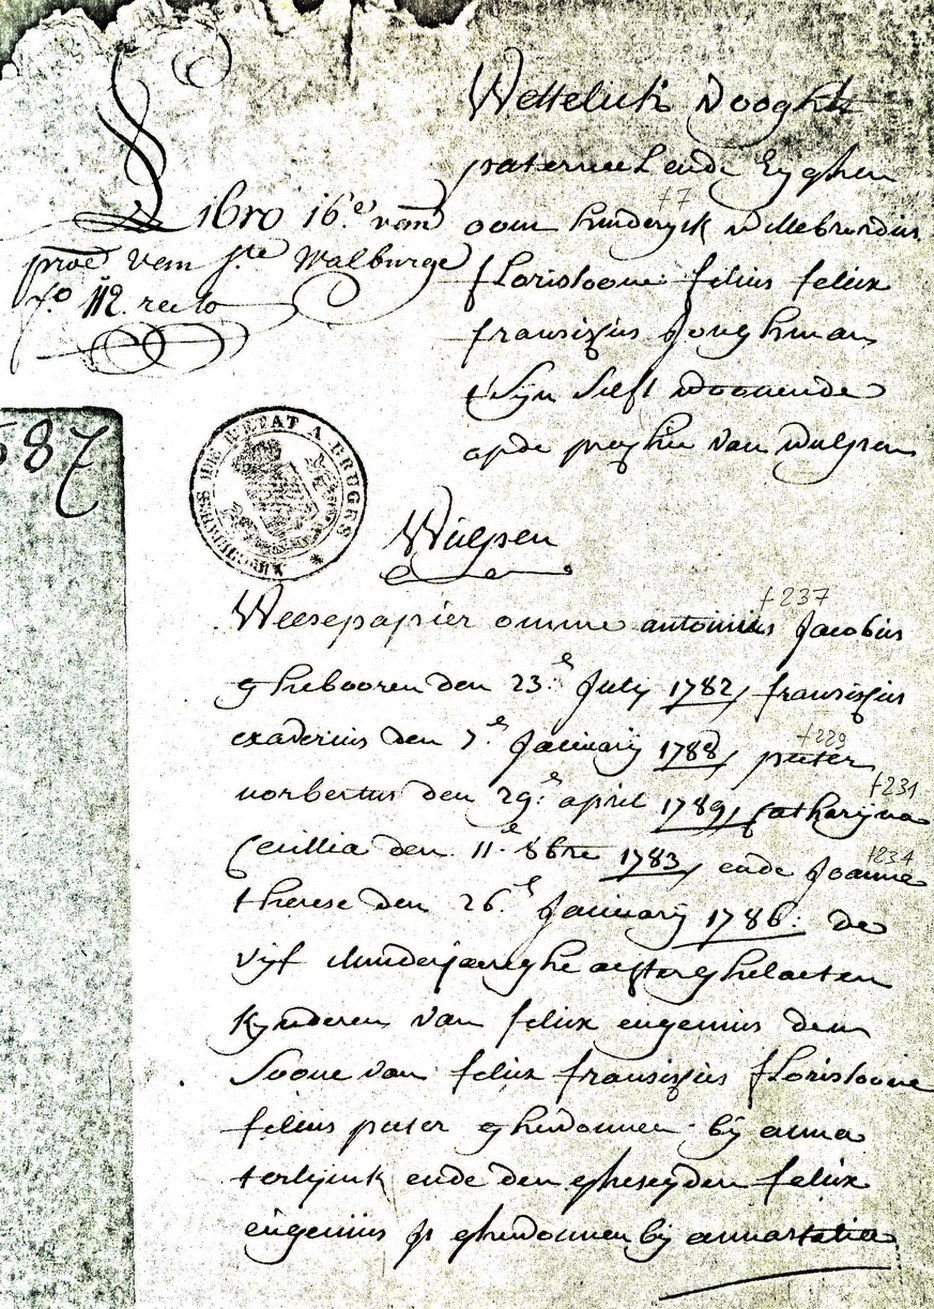 Libro 16.e van
proē vem Ste Walburge
fo. 112. recto
Wettelick vooght
paterneel ende Eyghen
+7
oom hinderyck willebrordus
florisoone filius felix
fransisjus Jonghman
t'Syn Self woonende
op de prochie van wulpen
587
ARCHIVES DE L'ETAT A BRUGES
Wulpen
+237
Weesepapier omme antonius Jacobus
ghebooren den 23.e July 1782, fransisjus
exaverius den 7.e January 1788, pieter
+229
norbertus den 29.e april 1789, Catharijna
+231
Cecillia den 11.e 8bre 1783, ende Joanne
+234
therese den 26.e January 1786: de
vijf Minderjareghe achterghelaeten
kynderen van felix eugenius den
Soone van felix fransisjus florisoone
filius pieter ghewonnen bij anna
terlijnk ende den gheseyden felix
eugenius is ghewonnen bij annastatia